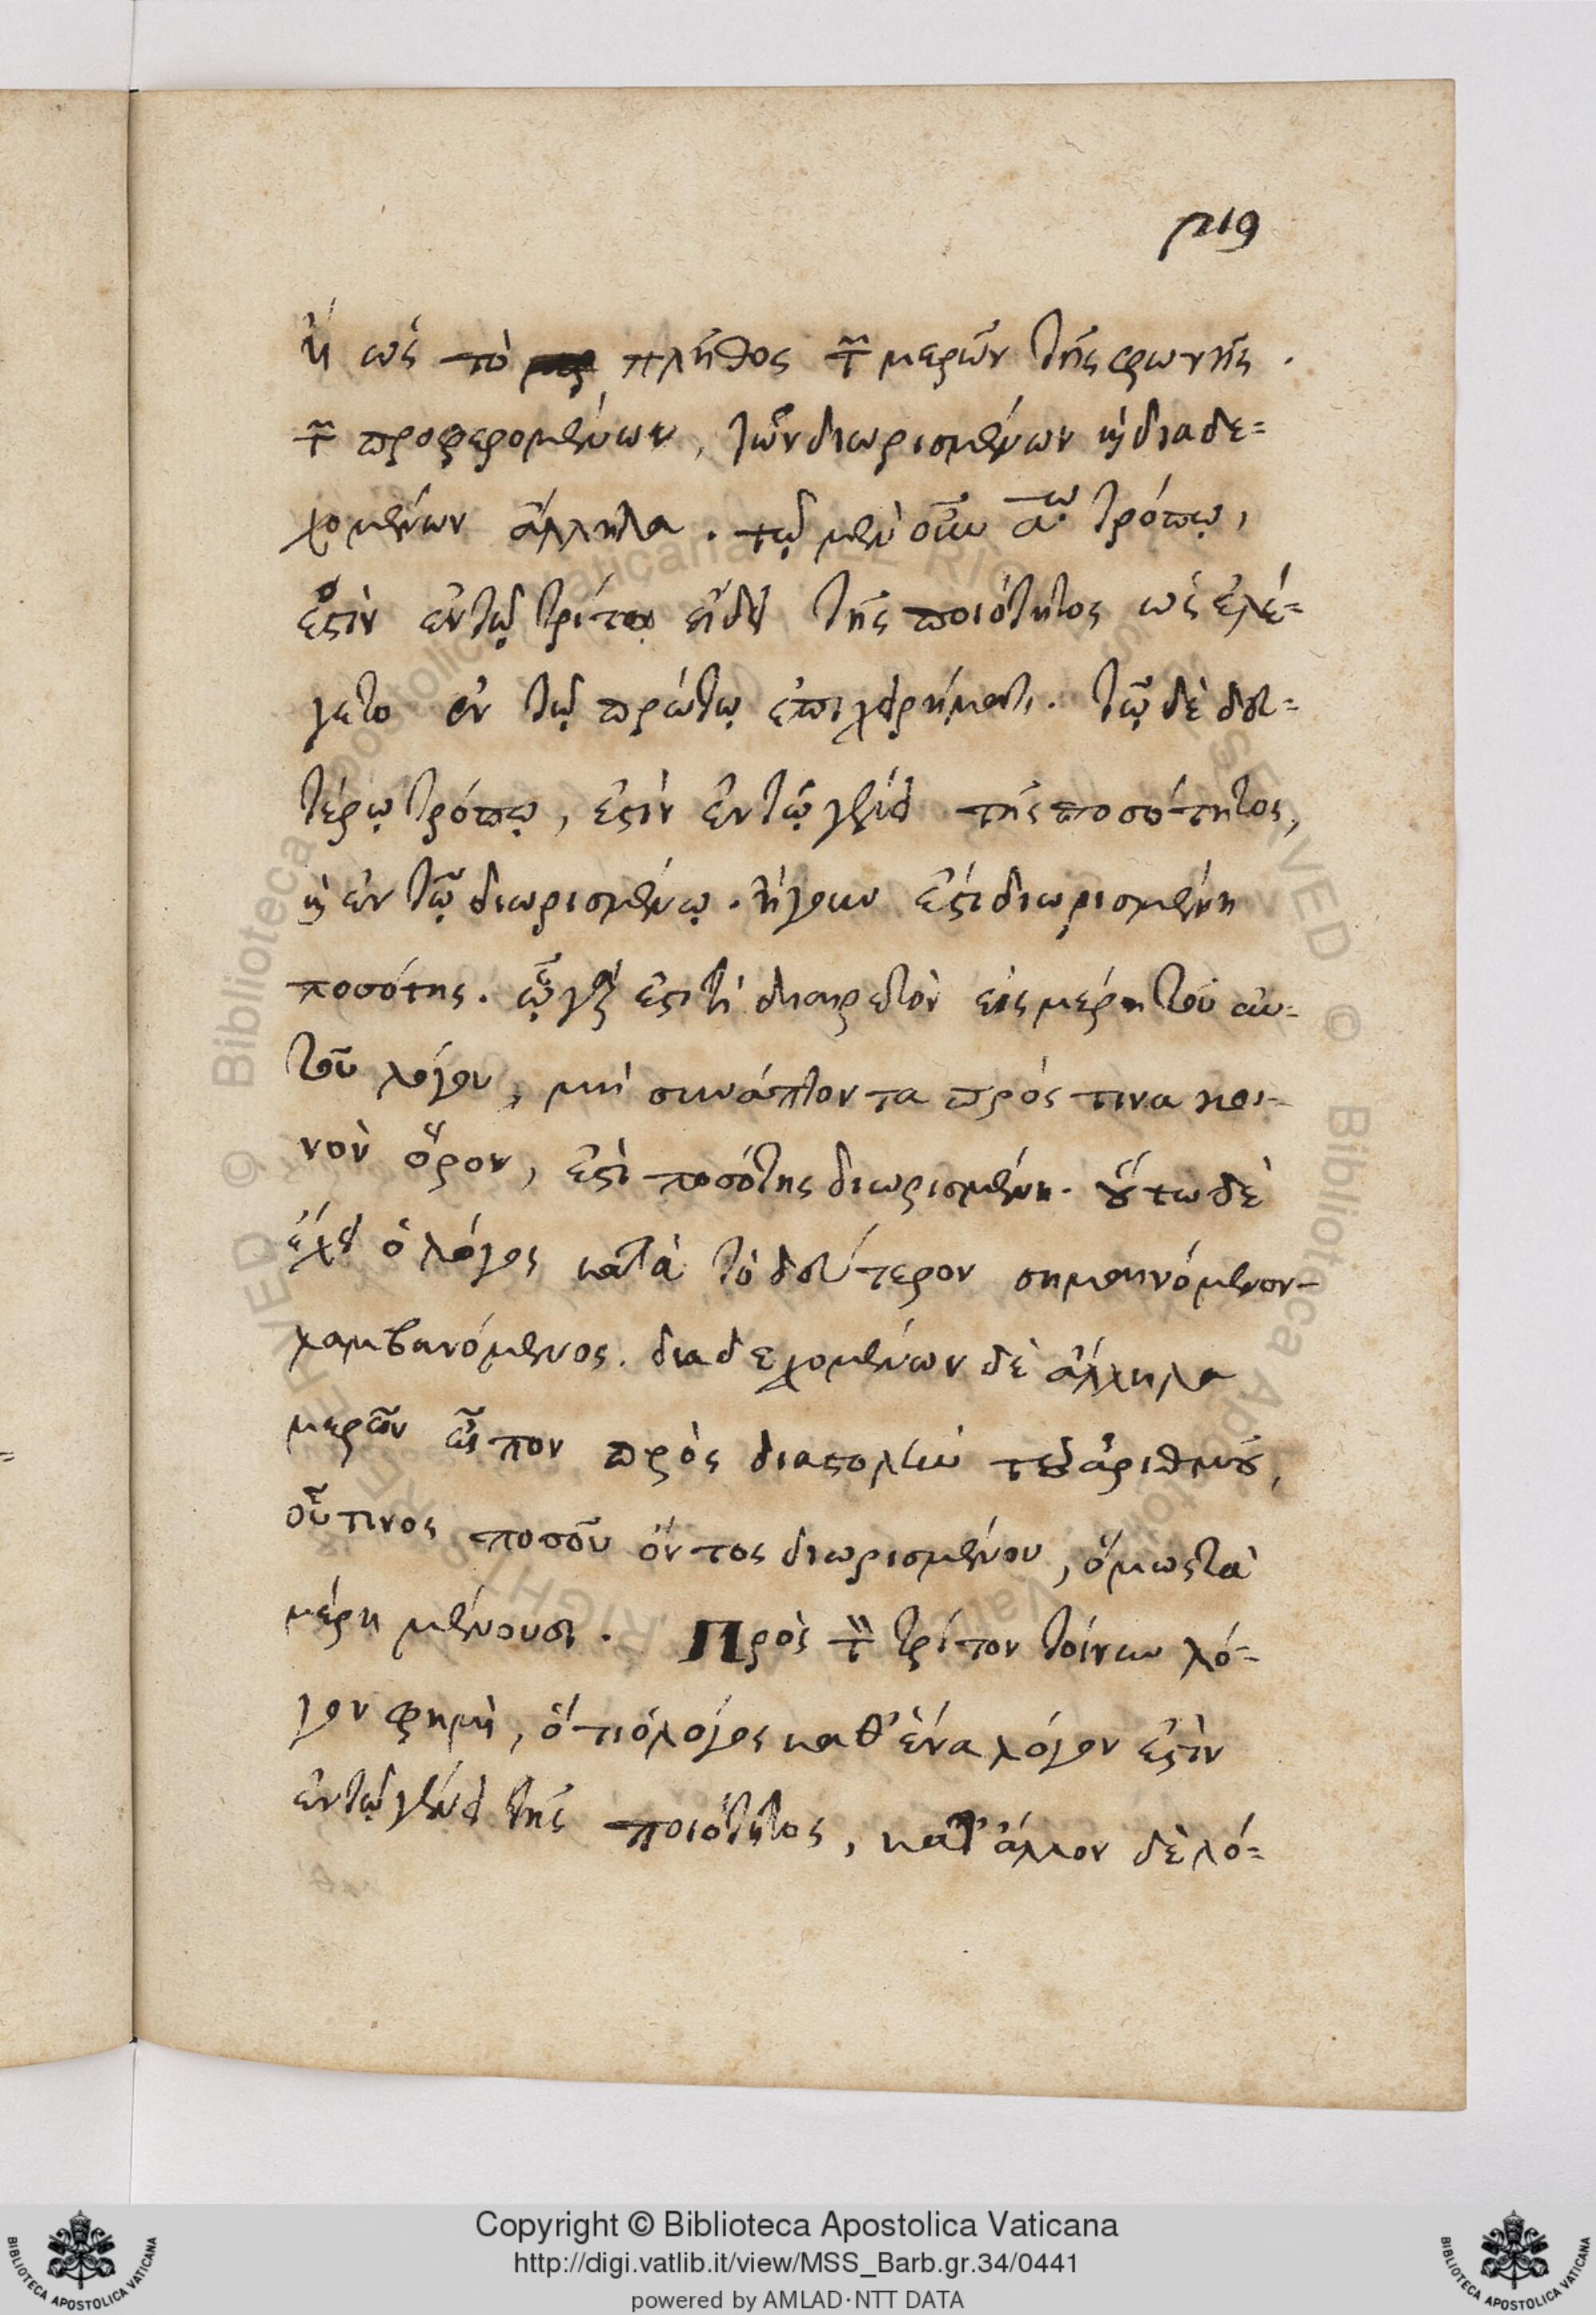 ριϛ
ἢ ὡς τὸ πλῆθος τῶν μερῶν τῆς φωνῆς.
τῶν προφερομένων, τῶν διωρισμένων ἢ διαδε=
χομένων ἄλληλα. τῷ μὲν οὖν αῳ τρόπῳ,
ἐστὶν ἐν τῷ τρίτῳ εἴδει τῆς ποιότητος ὡς ἐλέ=
γετο ἐν τῷ πρώτῳ ἐπιχειρήματι. τῷ δὲ δευ=
τέρῳ τρόπῳ, ἐστὶν ἐν τῷ γένει τῆς ποσότητος,
ἢ ἐν τῷ διωρισμένῳ. ἤγουν ἐστὶ διωρισμένη
ποσότης. ᾧ γὰρ ἐστί τι διαιρετὸν εἰς μέρη τοῦ αυ=
τοῦ λόγου, μὴ συνάπτοντα πρός τινα κοι=
νὸν ὅρον, ἐστὶ ποσότης διωρισμένη. οὕτω δὲ
ἔχει ὁ λόγος κατὰ τὸ δεύτερον σημαινόμενον
λαμβανόμενος. διαδεχομένων δὲ ἄλληλα
μερῶν εἶπον πρὸς διαστολὴν τοῦ ἀριθμοῦ,
οὗτινος ποσοῦ ὄντος διωρισμένου, ὅμως τὰ
μέρη μένουσι. Πρὸς τὸν τρίτον τοίνυν λό=
γον φημὶ, ὅτι ὁ λόγος καθ' ἕνα λόγον ἐστὶν
ἐν τῷ γένει τῆς ποιότητος, κατ' ἄλλον δὲ λό=
Copyright © Biblioteca Apostolica Vaticana
http://digi.vatlib.it/view/MSS_Barb.gr.34/0441
powered by AMLAD·NTT DATA